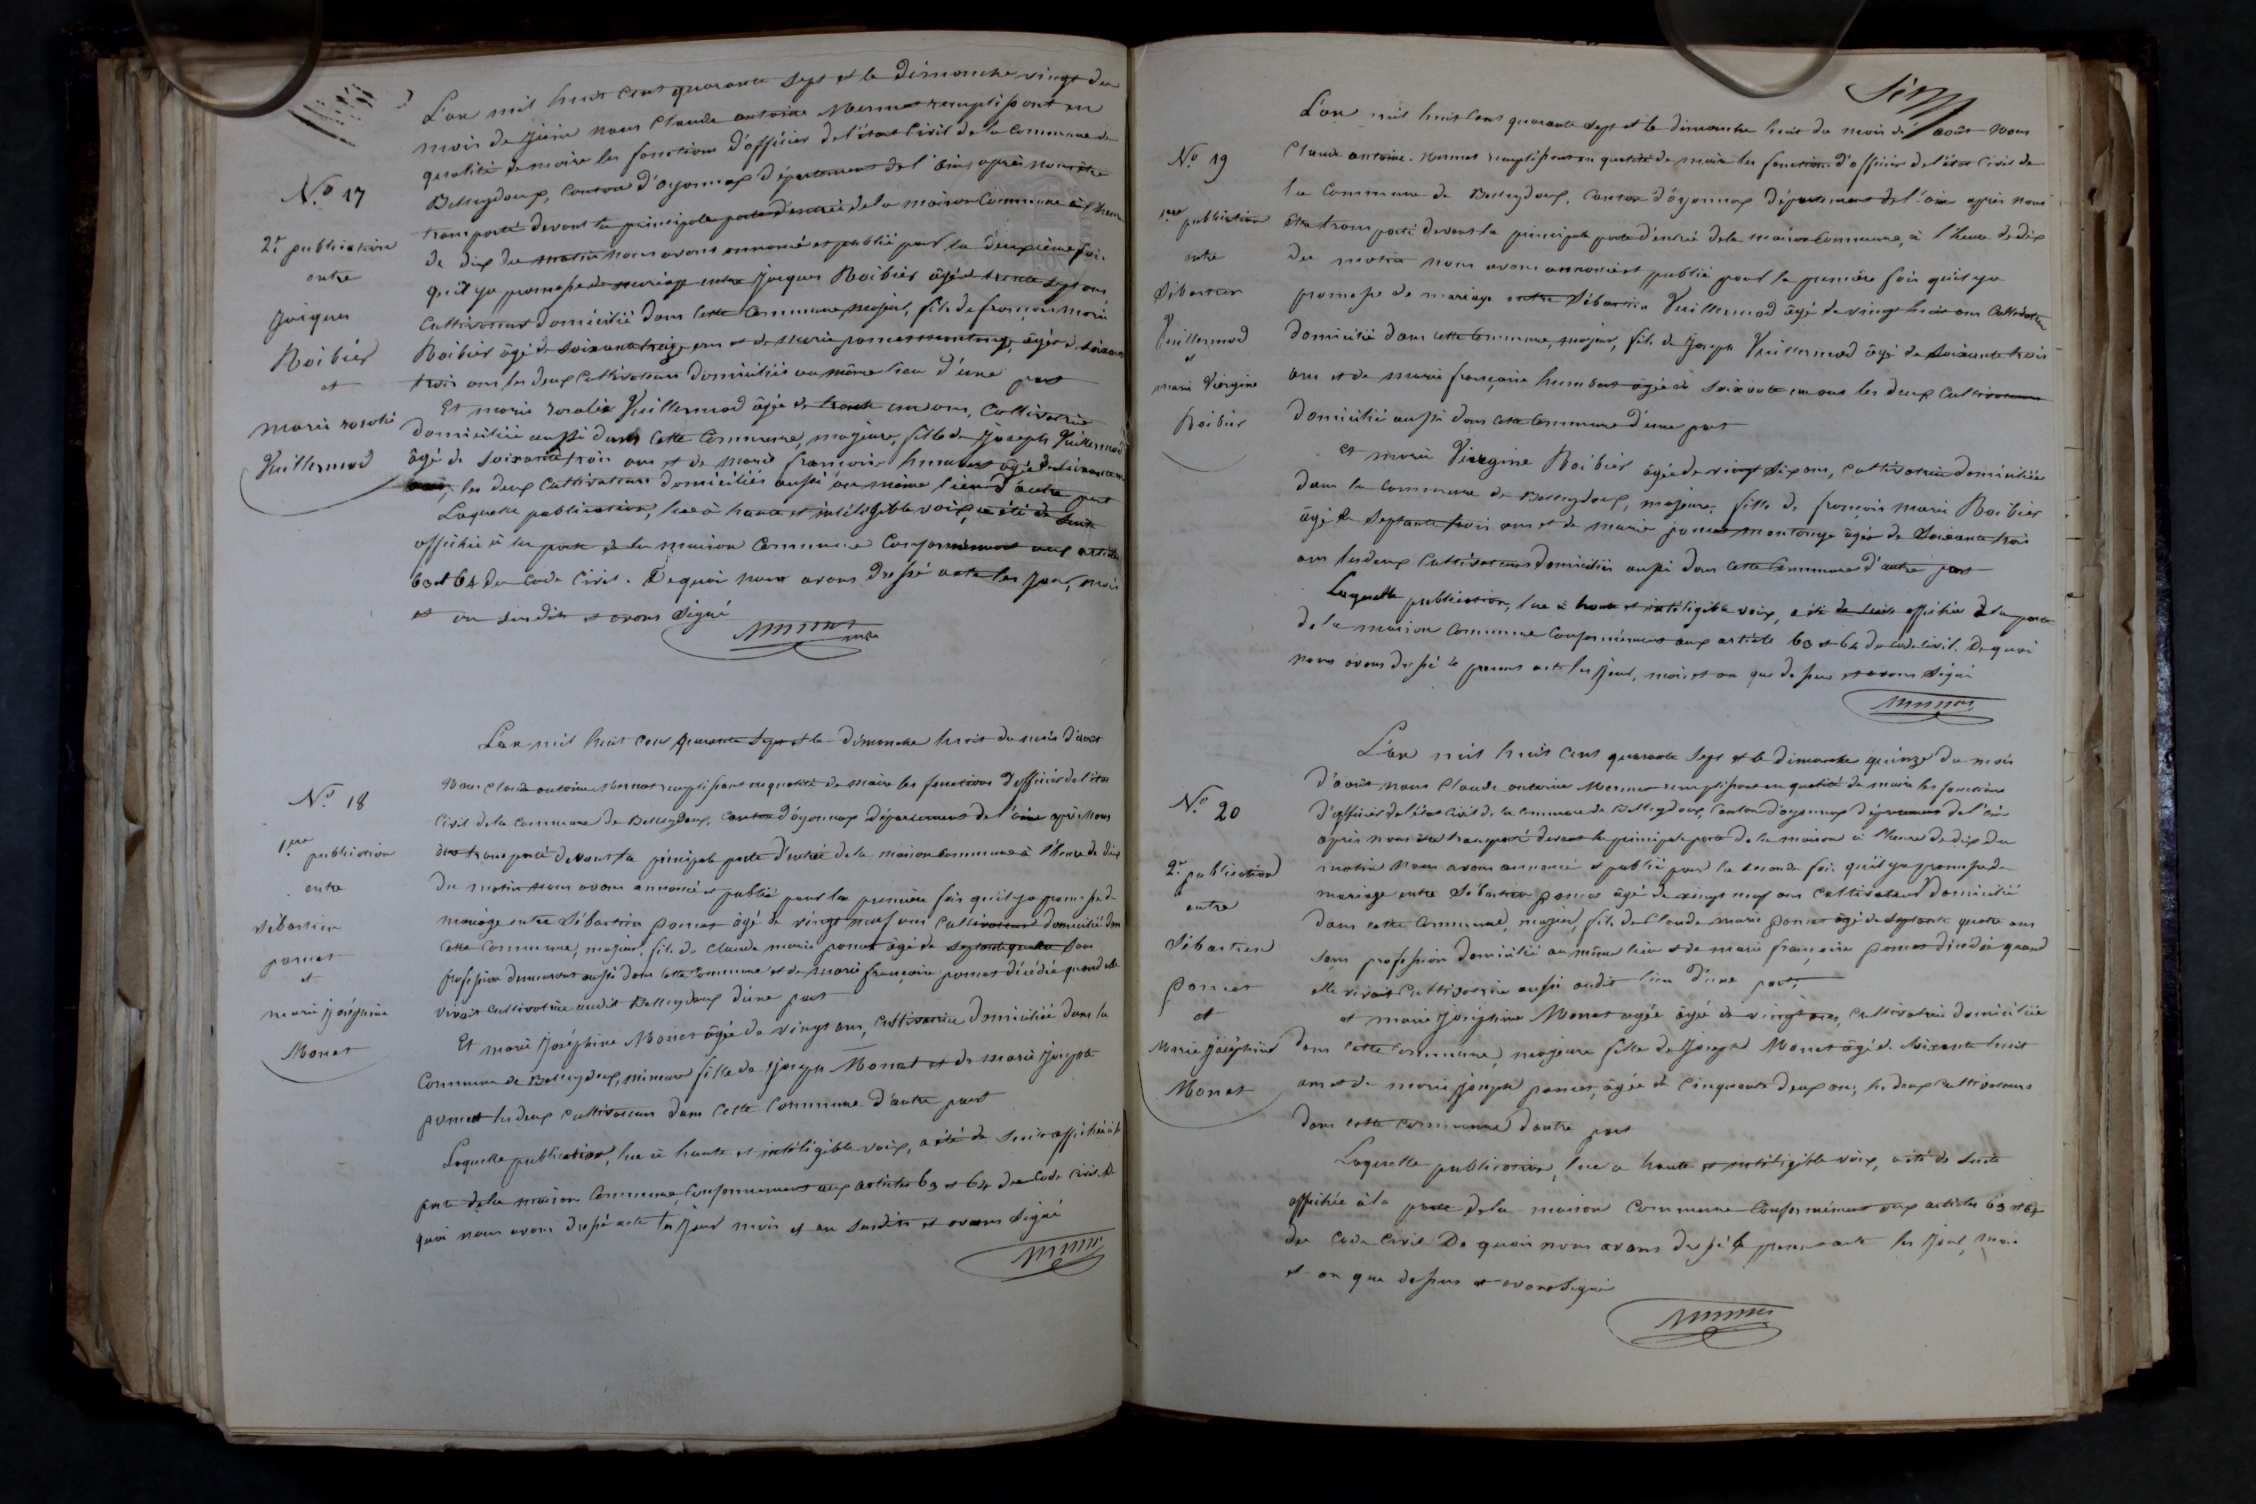 L'an mil huit cent quarante sept et le dimanche vingt du
mois de Juin nous Claude antoine Mermet remplissant en
qualité de maire les fonctions d'officier de l'état Civil de la Commune de
Belleydoux, Canton d'oyonnax Département de l'ain, après nous être
transporté devant la principale porte d'entrée de la maison Commune à l'heure
de dix du matin nous avons annoncé et publié pour la deuxième fois
qu'il y a promesse de mariage entre Jacques Roibier âgé de trente sept ans
Cultivateur domicilié dans cette Commune, majeur, fils de françois marie
Roibier âgé de soixante treize ans et de Marie poncet montange, âgée de soixante
trois ans les deux Cultivateurs domiciliés au même lieu d'une part
Et marie rosalie Vuillermod âgée de trente un ans, Cultivatrice
domiciliée aussi dans cette Commune, majeure, fille de Joseph Vuillermod
âgé de soixante trois ans et de Marie françoise humbert âgée de soixante un
ans, les deux Cultivateurs domiciliés aussi au même lieu d'autre part
Laquelle publication, lue à haute et intéligible voix, a été de suite
affichée à la porte de la maison Commune Conformément aux articles
63 et 64 du Code Civil. De quoi nous avons dressé acte les Jour, mois
et an susdits et avons signé
Mermet
N.º 17
2.e publication
entre
Jacques
Roibier
et
marie rosalie
Vuillermod
L'an mil huit cent quarante sept et le dimanche huit du mois d'août
Nous Claude antoine Mermet remplissant en qualité de maire les fonctions d'officier de l'état
Civil de la Commune de Belleydoux, Canton d'oyonnax département de l'ain après nous
être transporté devant la principale porte d'entrée de la maison Commune à l'heure de dix
du matin nous avons annoncé et publié pour la première fois qu'il y a promesse de
mariage entre Sébastien poncet âgé de vingt neuf ans Cultivateur domicilié dans
cette Commune, majeur, fils de Claude marie poncet âgé de septante quatre sans
profession demeurant aussi dans cette Commune et de Marie françoise poncet décédée quand elle
vivait cultivatrice audit Belleydoux d'une part
Et marie Joséphine Monet âgée de vingt ans, cultivatrice domiciliée dans la
Commune de Belleydoux, mineure fille de Joseph Monet et de marie Josephte
poncet les deux cultivateurs dans cette Commune d'autre part
Laquelle publication, lue à haute et intéligible voix, a été de suite affichée à la
porte de la maison Commune, Conformément aux articles 63 et 64 du Code Civil. De
quoi nous avons dressé acte les Jour mois et an susdits et avons signé
Mermet
N.º 18
1.ere publication
entre
Sébastien
poncet
et
marie Joséphine
Monet
L'an mil huit cent quarante sept et le dimanche huit du mois d'août Nous
Claude antoine Mermet remplissant en qualité de maire les fonctions d'officier de l'état Civil de
la Commune de Belleydoux, Canton d'oyonnax département de l'ain après nous
être transporté devant la principale porte d'entrée de la maison Commune, à l'heure de dix
du matin nous avons annoncé et publié pour la première fois qu'il y a
promesse de mariage entre Sébastien Vuillermod âgé de vingt huit ans Cultivateur
domicilié dans cette Commune, majeur, fils de Joseph Vuillermod âgé de soixante trois
ans et de marie françoise humbert âgée de soixante un ans les deux Cultivateurs
domiciliés aussi dans cette Commune d'une part
et marie Viergine Roibier âgée de vingt six ans, Cultivatrice domiciliée
dans la commune de Belleydoux, majeure, fille de françois marie Roibier
âgé de septante trois ans et de marie poncet montange âgée de soixante trois
ans les deux Cultivateurs domiciliés aussi dans cette Commune d'autre part
Laquelle publication, lue à haute et intéligible voix, a été de suite affichée à la porte
de la maison Commune Conformément aux articles 63 et 64 du Code Civil. De quoi
nous avons dressé le présent acte les Jour, mois et an que dessus et avons signé
Mermet
N.º 19
1.ere publication
entre
Sébastien
Vuillermod
et
marie Viergine
Roibier
L'an mil huit cent quarante sept et le dimanche quinze du mois
d'août nous Claude antoine Mermet remplissant en qualité de maire les fonctions
d'officier de l'état Civil de la Commune de Belleydoux, Canton d'oyonnax département de l'ain
après nous être transporté devant la principale porte de la maison à l'heure de dix du
matin nous avons annoncé et publié pour la seconde fois qu'il y a promesse de
mariage entre Sébastien poncet âgé de vingt neuf ans Cultivateur domicilié
dans cette Commune, majeur, fils de Claude marie poncet âgé de septante quatre ans
sans profession domicilié au même lieu et de marie françoise poncet décédée quand
elle vivait Cultivatrice aussi audit lieu d'une part,
et marie Joséphine Monet agée âgé de vingt ans, Cultivatrice domiciliée
dans cette Commune, majeure fille de Joseph Monet âgé de soixante huit
ans et de marie Joseph poncet, âgée de cinquante deux ans, les deux Cultivateurs
dans cette Commune d'autre part
Laquelle publication, lue à haute et intéligible voix, a été de suite
affichée à la porte de la maison Commune Conformément aux articles 63 et 64
du Code Civil De quoi nous avons dressé le présent acte les Jour, mois
et an que dessus et avons signé
Mermet
N.º 20
2.e publication
entre
Sébastien
Poncet
et
Marie Joséphine
Monet